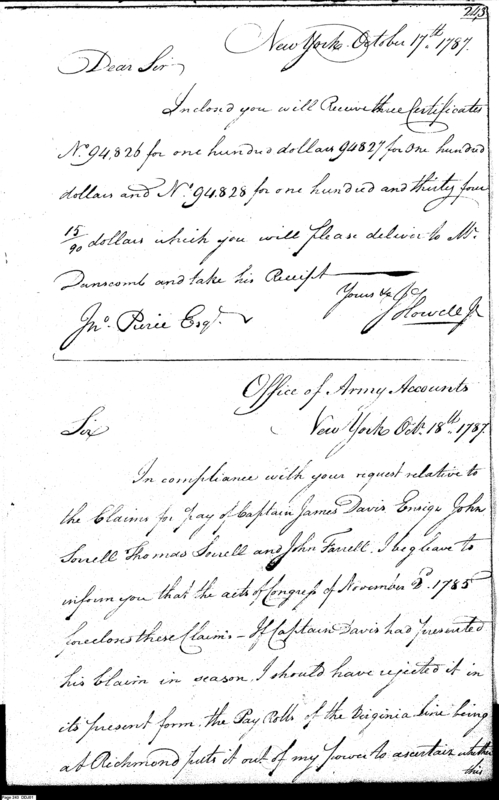 243
New York October 17th 1787.
Dear Sir
Inclosd you will Receive three Certificates
No. 94,826 for one hundred dollars 94827 for One hundred
dollars and No. 94.828 for one hundred and thirty four
15/90 dollars which you will please deliver to Mr.
Dunscomb and take his Receipt
Yours &c &c
J Howell Jr
Jno. Pierce Esqr.
Office of Army Accounts
New York Octr. 18th. 1787.
Sir
In compliance with your request relative to
the Claims for pay of Captain James Davis Ensign John
Sorrell Thomas Sorrell and John Farrell. I beg leave to
inform you that the acts of Congress of November 2d. 1785
these Claims - If Captain Davis had presented
his Claim in season, I should have rejected it in
its present form, the Pay Rolls of the Virginia line being
at Richmond puts it out of my power to ascertain whether
this
Page 243 DDJ01